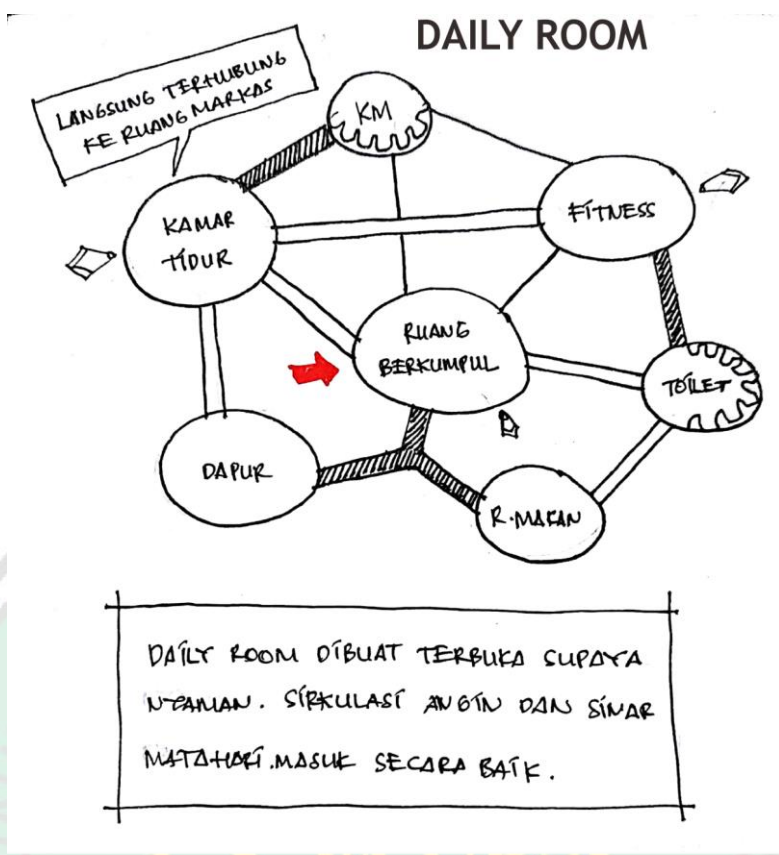 DAILY ROOM
LANGSUNG TERHUBUNG
KE RUANG MARKAS
KM
KAMAR
TIDUR
FITNESS
RUANG
BERKUMPUL
TOILET
DAPUR
R.MAKAN
DAILY ROOM DIBUAT TERBUKA SUPAYA
NYAMAN. SIRKULASI ANGIN DAN SINAR
MATAHARI.MASUK SECARA BAIK.